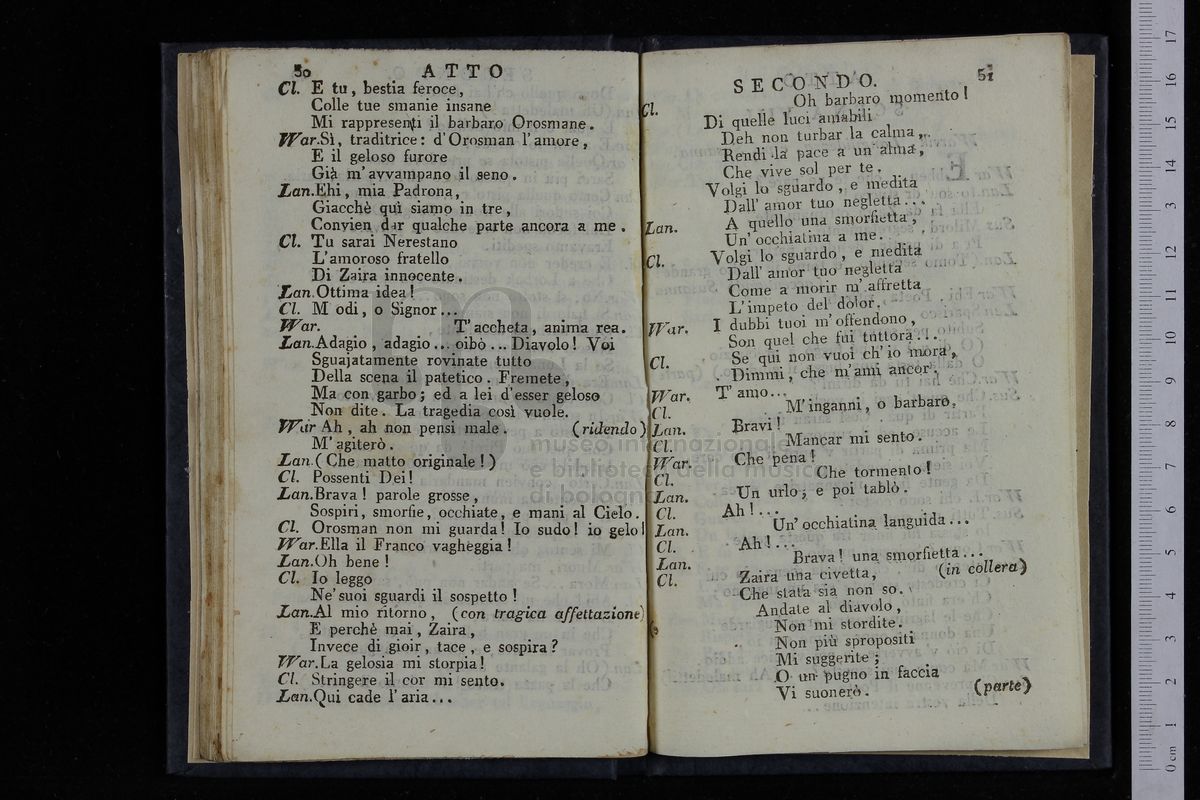 50 ATTO
Cl. E tu, bestia feroce,
Colle tue smanie insane
Mi rappresenti il barbaro Orosmane.
War. Sì, traditrice: d'Orosman l'amore,
E il geloso furore
Già m'avvampano il seno.
Lan. Ehi, mia Padrona,
Giacchè quì siamo in tre,
Convien dar qualche parte ancora a me.
Cl. Tu sarai Nerestano
L'amoroso fratello
Di Zaira innocente.
Lan. Ottima idea!
Cl. M'odi, o Signor...
War. T'accheta, anima rea.
Lan. Adagio, adagio... oibò... Diavolo! Voi
Sguajatamente rovinate tutto
Della scena il patetico. Fremete,
Ma con garbo; ed a lei d'esser geloso
Non dite. La tragedia così vuole.
War Ah, ah non pensi male. (ridendo)
M'agiterò.
Lan. (Che matto originale!)
Cl. Possenti Dei!
Lan. Brava! parole grosse,
Sospiri, smorfie, occhiate, e mani al Cielo.
Cl. Orosman non mi guarda! Io sudo! io gelo!
War. Ella il Franco vagheggia!
Lan. Oh bene!
Cl. Io leggo
Ne' suoi sguardi il sospetto!
Lan. Al mio ritorno, (con tragica affettazione)
E perchè mai, Zaira,
Invece di gioir, tace, e sospira?
War. La gelosia mi storpia!
Cl. Stringere il cor mi sento.
Lan. Qui cade l'aria...
SECONDO. 51
Oh barbaro momento!
Cl. Di quelle luci amabili
Deh non turbar la calma,
Rendi la pace a un' alma,
Che vive sol per te.
Volgi lo sguardo, e medita
Dall' amor tuo negletta...
Lan. A quello una smorfietta,
Un' occhiatina a me.
Cl. Volgi lo sguardo, e medita
Dall' amor tuo negletta
Come a morir m'affretta
L'impeto del dolor.
War. I dubbi tuoi m'offendono,
Son quel che fui tuttora...
Cl. Se qui non vuoi ch'io mora,
Dimmi, che m'ami ancor.
War. T'amo...
Cl. M'inganni, o barbaro.
Lan. Bravi!
Cl. Mancar mi sento.
War. Che pena!
Cl. Che tormento!
Lan. Un urlo, e poi tablò.
Cl. Ah!...
Lan. Un' occhiatina languida...
Cl. Ah!...
Lan. Brava! una smorfietta...
Cl. Zaira una civetta, (in collera)
Che stata sia non so.
Andate al diavolo,
Non mi stordite.
Non più spropositi
Mi suggerite;
O un pugno in faccia
Vi suonerò. (parte)
museo internazionale
e biblioteca della musica
di bologna
0 cm 1 2 3 4 5 6 7 8 9 10 11 12 13 14 15 16 17